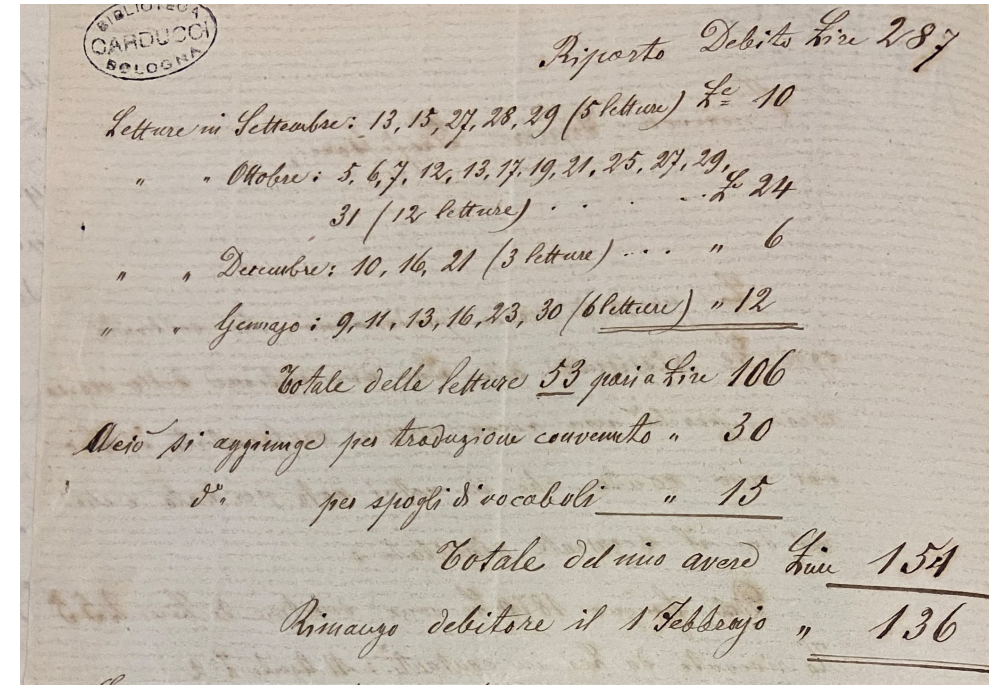 BIBLIOTECA
CARDUCCI
BOLOGNA
Riporto Debito Lire 287
Letture in Settembre: 13, 15, 27, 28, 29 (5 letture) Le 10
" " Ottobre: 5, 6, 7, 12, 13, 17, 19, 21, 25, 27, 29,
31 (12 letture) . . . . . . Le 24
" " Decembre: 10, 16, 21 (3 letture) .... " 6
" " Gennajo: 9, 11, 13, 16, 23, 30 (6 letture) " 12
Totale delle letture 53 pari a Lire 106
A ciò si aggiunge per traduzione convenuto " 30
do. per spogli di vocaboli " 15
Totale del mio avere Lire 154
Rimango debitore il 1 Febbrajo " 136